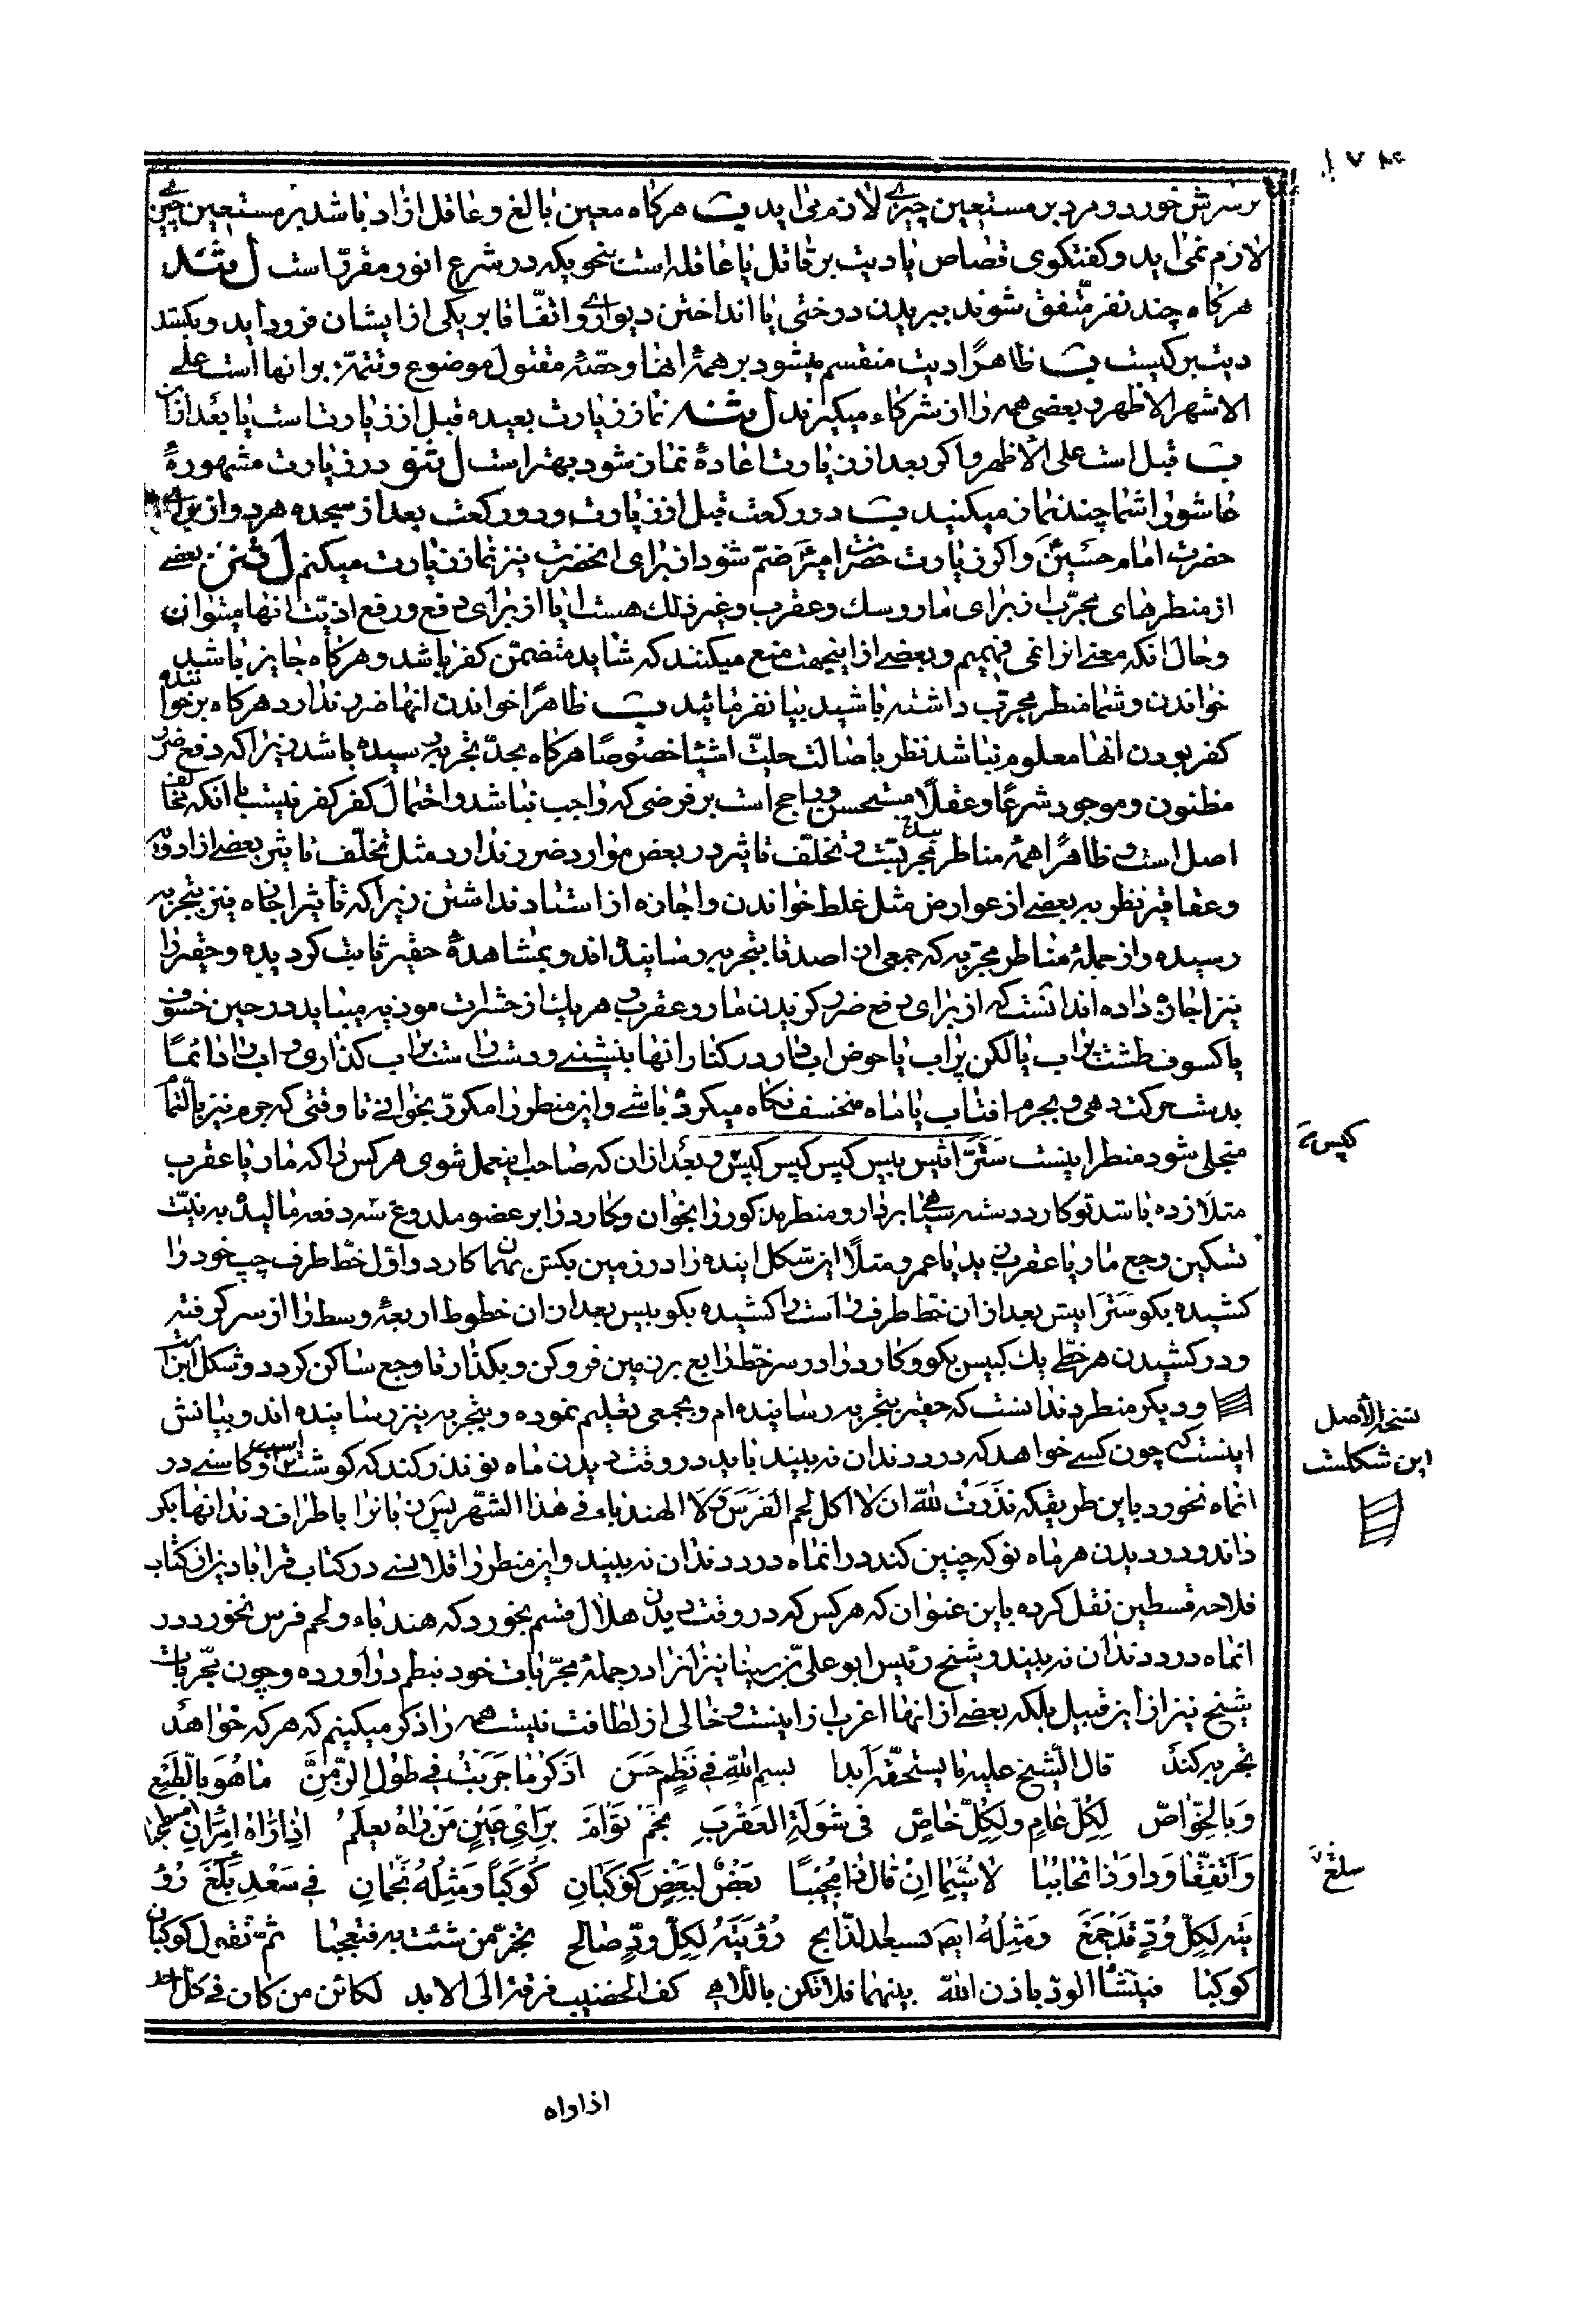 ۱۷۴
بر سرش خورد و مرد بر مستعین چیزے لازم می اید یت هرکاه معین بالغ و عاقل ازاد باشد بر مستعین چیزے
لازم نمی اید و کفتکوی قصاص یا دیت بر قاتل یا عاقله است بنحویکه در شرع انور مقرّر است ل
هرکاه چند نفر متّفق شوند ببریدن درختی یا انداختن دیوارے و اتّفاقا بر یکی از ایشان فرود اید و بکشد
دیت بر کیست یت ظاهرًا دیت منقسم میشود بر همۀ انها و حصّۀ مقتول موضوع و تتمّه بر انها است علے
الاشهر الاظهر و بعضی همه را از شرکاء میکیرند ل نماز زیارت بعیده قبل از زیارت است یا بعد از ان
یت قبل است علی الاظهر و اکر بعد از زیارت اعادۀ نماز شود بهتر است ل در زیارت مشهورۀ
عاشورا شما چند نماز میکنید یت دو رکعت قبل از زیارت و دو رکعت بعد از سجده هر دو از برای
حضرت امام حسینؑ و اکر زیارت حضرت امیرؑ ضم شود از برای انحضرت نیز نماز زیارت میکنم ل بعضے
از منطرهای مجرّب از برای مار و سك و عقرب و غیر ذلك هست ایا از برای دفع و رفع اذیّت انها میتوان
و حال انکه معنے انرا نمی فهمیم و بعضے از اینجهت منع میکنند که شاید متضمّن کفر باشد و هرکاه جایز باشد
خواندن و شما منطر مجرّب داشته باشید بیان فرمائید یت ظاهرًا خواندن انها ضرر ندارد هرکاه بر خواننده
کفر بودن انها معلوم نباشد نظر باصالت حلیّت اشیا خصوصًا هرکاه بحدّ تجربه رسیده باشد زیرا که دفع ضرر
مظنون و موجود شرعًا و عقلًا مستحسن و راجح است بر فرضی که واجب نباشد و احتمال کفر کفر نیست با انکه
اصل است و ظاهرًا همۀ مناطر تجربیّت و تخلّف تاثیر در بعض موارد ضرر ندارد مثل تخلّف تاثیر بعضے از ادویه
و عقاقیر نظر ببعضے از عوارض مثل غلط خواندن و اجازه از استاد نداشتن زیرا که تاثیر اجازه نیز بتجربه
رسیده و از جملۀ مناطر مجرّبه که جمعی از اصدقا بتجربه رسانیده اند و بمشاهدۀ حقیر ثابت کردیده و حقیر را
نیز اجازه داده اند انست که از برای دفع ضرر کزیدن مار و عقرب و هر یك از حشرات موذیه میباید در حین خسوف
یا کسوف طشت پر اب یا لکن پر اب یا حوض اب دار در کنار انها بنشینے و دست راست بر اب کذاری و اب را دائمًا
بدست حرکت دهی و بجرم افتاب یا ماه منخسف نکاه میکرده باشے و این منطر را مکرّر بخوانے تا وقتی که جرم نیّر بالتمام
متجلی شود منطر اینست
کپس
و بعد از ان که صاحب اینعمل شوی هر کس را که مار یا عقرب
مثلًا زده باشد تو کارد دسته سیاه بردار و منطر مذکور را بخوان و کارد را بر عضو ملدوغ سه دفعه مالیده به نیّت
تسکین وجع مار یا عقرب زید یا عمرو مثلًا این شکل اینده را در زمین بکش بهمان کارد و اوّل خطّ طرف چپ خود را
کشیده بکو ستر ایتس بعد از ان خطّ طرف راست را کشیده بکو بیس بعد از ان خطوط اربعۀ وسط را از سر کرفته
و در کشیدن هر خطّے یك کپس بکو و کارد را در سر خطّ رابع بر زمین فرو کن و بکذار تا وجع ساکن کردد و شکل این است
و دیکر منطر دندانست که حقیر بتجربه رسانیده ام و بجمعی تعلیم نموده و بتجربه نیز رسانیده اند و بیانش
نسخة الاصل
این شکلست
اینست که چون کسے خواهد که درد دندان نه بیند باید در وقت دیدن ماه نو نذر کند که کوشت اسب و کاسنے در
انماه نخورد باین طریق که نَذَرتُ للّه ان لا اکل لحم الفَرَس و لا الهندباء فے هذا الشّهر پس زبانرا باطراف دندانها بکر
داند و در دیدن هر ماه نو که چنین کند در انماه درد دندان نه بیند و این منطر را قلانسے در کتاب قرابادین از کتاب
فلاحه قسطین نقل کرده باین عنوان که هر کس که در وقت دیدن هلال قسم بخورد که هندباء و لحم فرس نخورد در
انماه درد دندان نه بیند و شیخ رئیس ابو علی بن سینا نیز انرا در جملۀ مجرّبات خود بنظم در اورده و چون مجرّبات
شیخ نیز از این قبیل بلکه بعضے از انها اغرب از اینست و خالی از لطافت نیست همه را ذکر میکنیم که هر که خواهد
تجربه کند قال الشیخ علیه ما یستحقّه ابدا بسم اللّه فے نظم حَسَن اذکر ما جرّبت فے طول الزّمن ما هو بالطّبع
و بالخواصّ لکلّ عامٍ و لکلّ خاصّ فی شولة العقرب نجم توام براي عین من راه یعلم اذا راه امران
و اتّفقا و داوَذا تحاببا لا سیّما ان قال ذا مجیبا بعضٌ لبعضٍ کوکبان کوکبًا و مثله نجمان فے سعد بلغ رُؤ
سلغ
یته لکلّ ودٍّ قد جمع و مثله ایضا سعد الذّابح رؤیته لکلّ ودٍّ صالح تخبر من شئت به فتعجبا ثم تقول کوکبان
کوکبا فینشأ الودّ باذن اللّه بینهما فلا تکن باللّاهی کف الخضیب فرقة الی الابد لکائن من کان فے کل احد
اذا راه